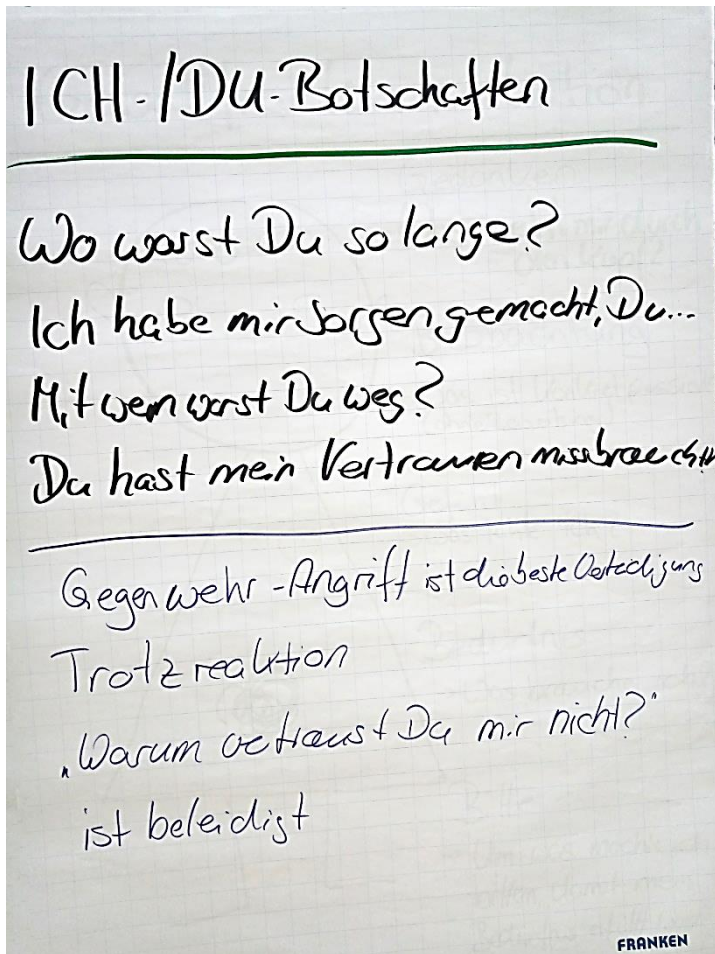 ICH-/DU-Botschaften
Wo warst Du so lange?
Ich habe mir Sorgen gemacht, Du...
Mit wem warst Du weg?
Du hast mein Vertrauen missbraucht
Gegenwehr - Angriff ist die beste Verteidigung
Trotzreaktion
„Warum vertraust Du mir nicht?"
ist beleidigt
FRANKEN